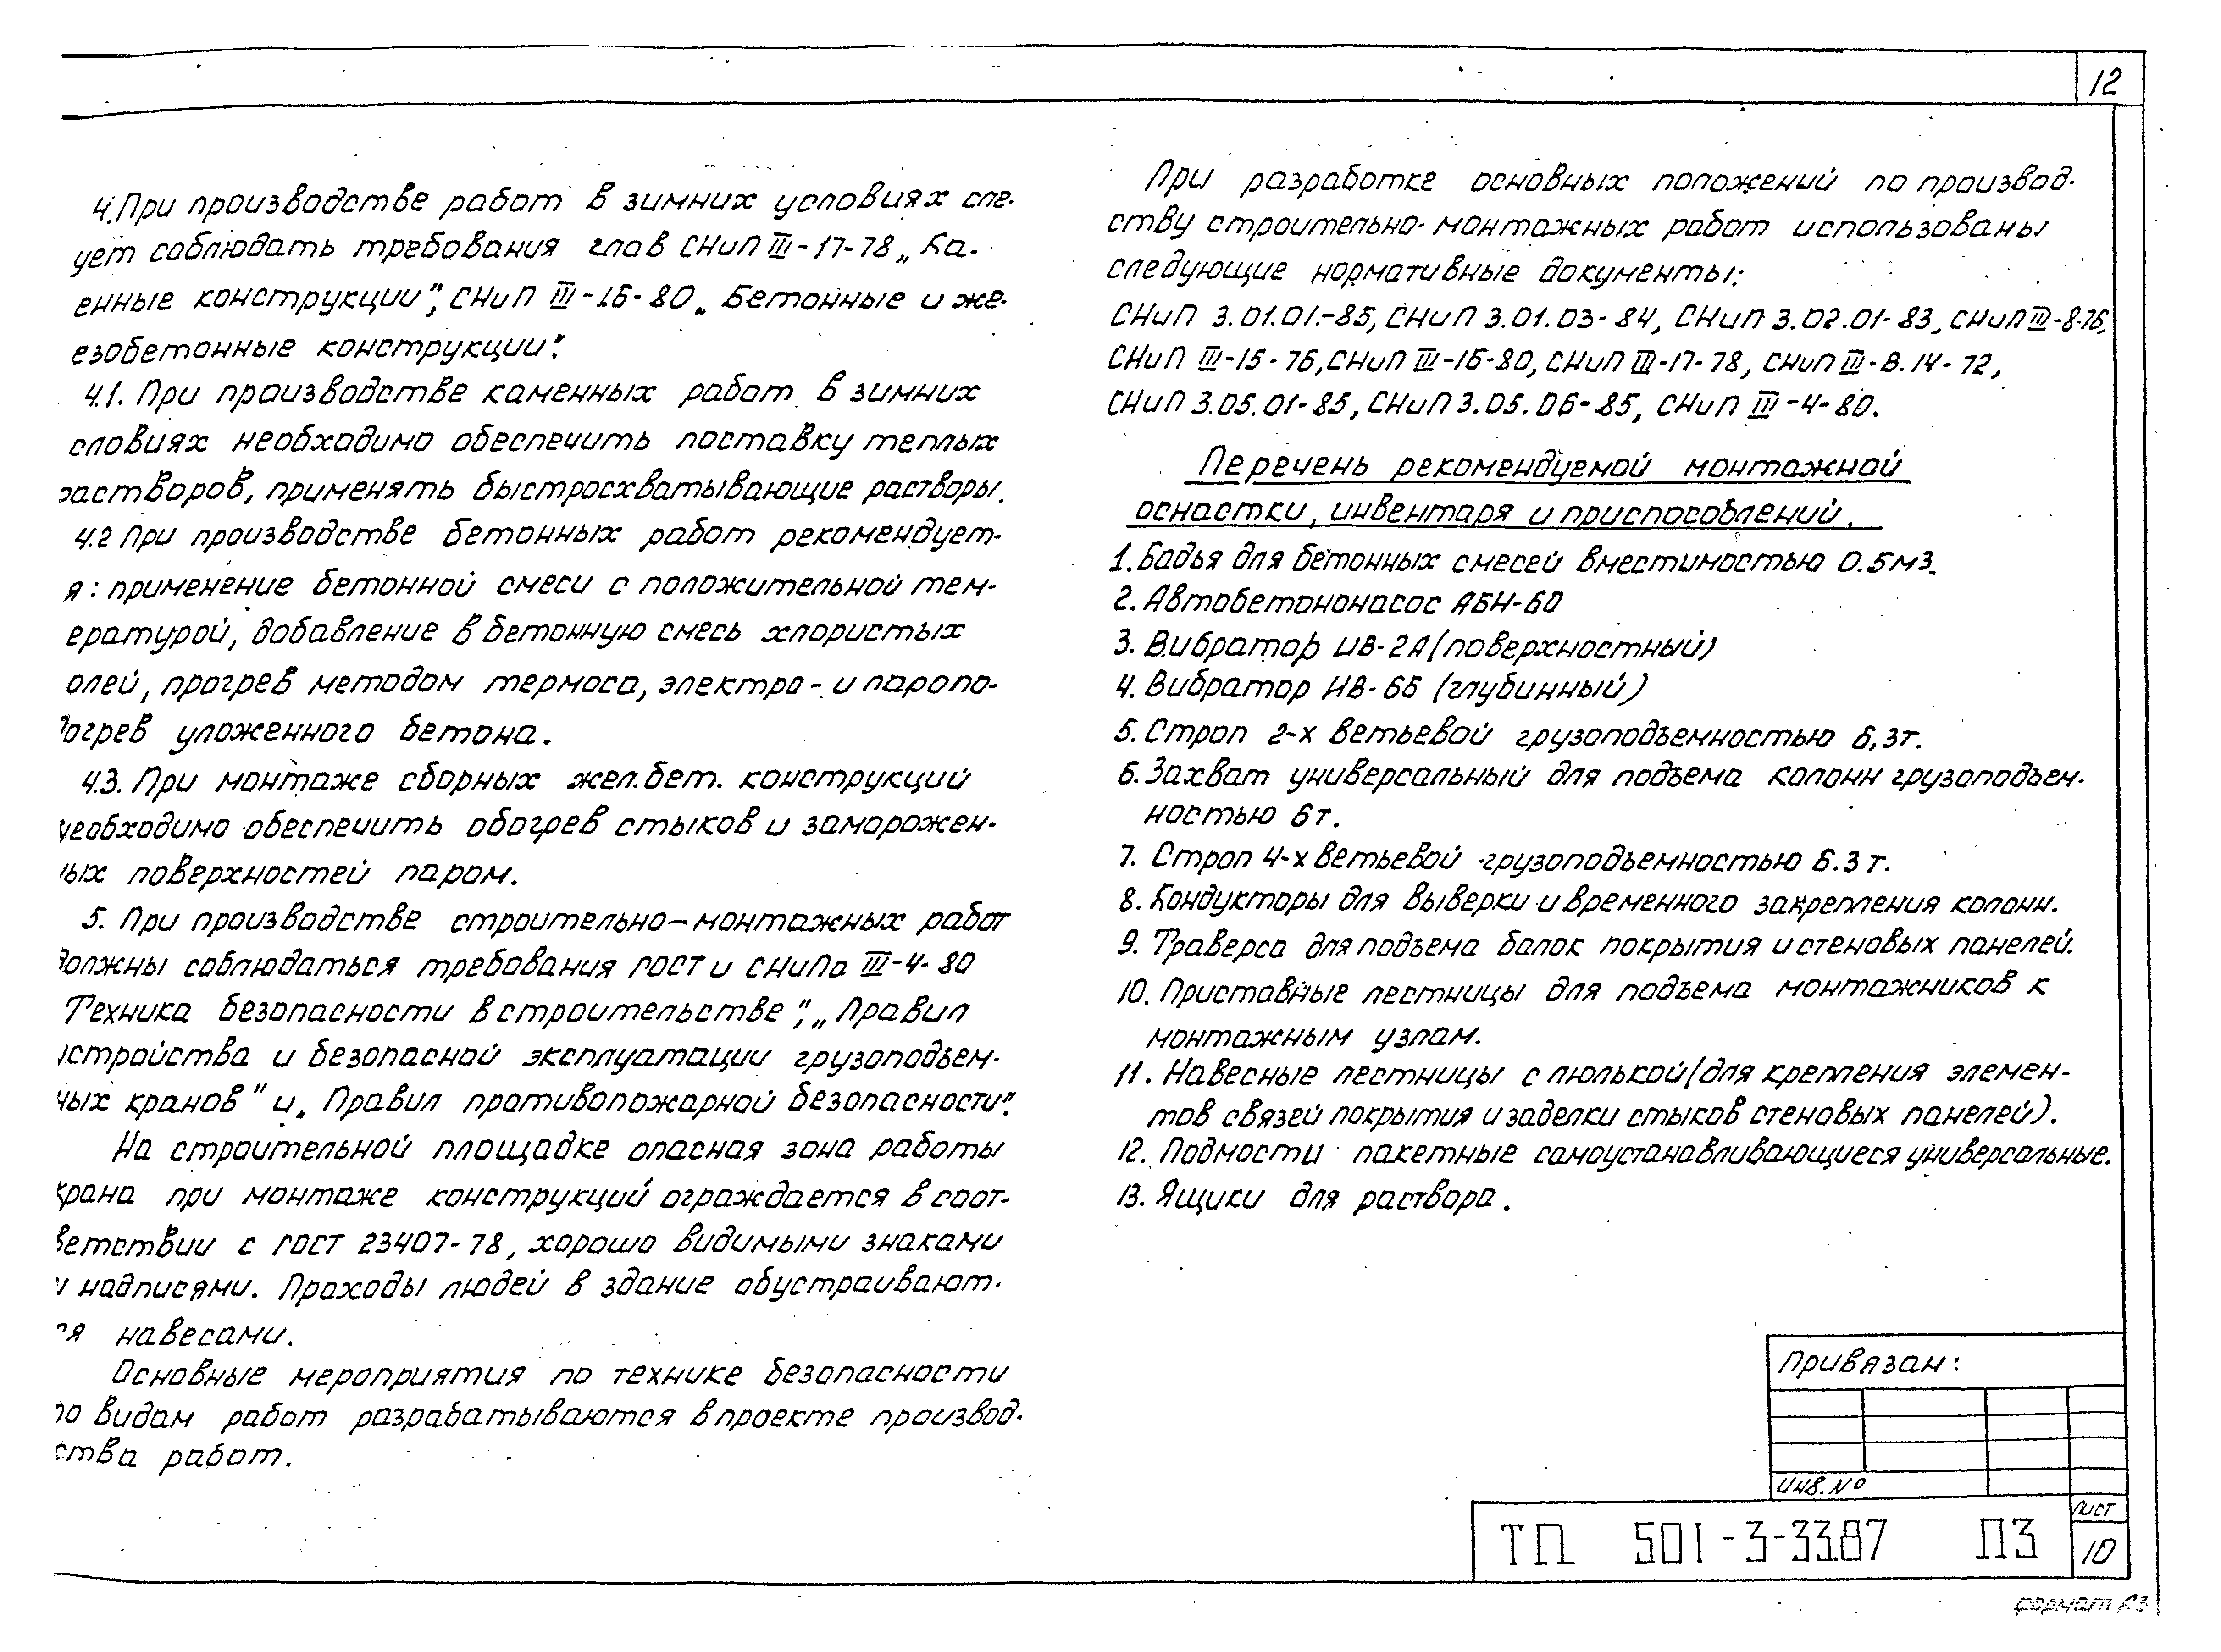 12
4. При производстве работ в зимних условиях сле-
ует соблюдать требования глав СНиП III-17-78 „Ка-
енные конструкции", СНиП III-16-80 „Бетонные и же-
езобетонные конструкции".
4.1. При производстве каменных работ в зимних
словиях необходимо обеспечить поставку теплых
растворов, применять быстросхватывающие растворы.
4.2 При производстве бетонных работ рекомендует-
я: применение бетонной смеси с положительной тем-
ературой, добавление в бетонную смесь хлористых
олей, прогрев методом термоса, электро- и паропо-
догрев уложенного бетона.
4.3. При монтаже сборных жел.бет. конструкций
необходимо обеспечить обогрев стыков и заморожен-
ных поверхностей паром.
5. При производстве строительно-монтажных работ
должны соблюдаться требования ГОСТ и СНиПа III-4-80
Техника безопасности в строительстве", „Правил
устройства и безопасной эксплуатации грузоподъем-
ных кранов" и „Правил противопожарной безопасности".
На строительной площадке опасная зона работы
крана при монтаже конструкций ограждается в соот-
ветствии с ГОСТ 23407-78, хорошо видимыми знаками
и надписями. Проходы людей в здание обустраивают-
ся навесами.
Основные мероприятия по технике безопасности
по видам работ разрабатываются в проекте производ-
ства работ.
При разработке основных положений по производ-
ству строительно-монтажных работ использованы
следующие нормативные документы:
СНиП 3.01.01.-85, СНиП 3.01.03-84, СНиП 3.02.01-83, СНиП III-8-76,
СНиП III-15-76, СНиП III-16-80, СНиП III-17-78, СНиП III-В.14-72,
СНиП 3.05.01-85, СНиП 3.05.06-85, СНиП III-4-80.
Перечень рекомендуемой монтажной
оснастки, инвентаря и приспособлений.
1. Бадья для бетонных смесей вместимостью 0.5 м3.
2. Автобетононасос АБН-60
3. Вибратор ИВ-2А (поверхностный)
4. Вибратор ИВ-66 (глубинный)
5. Строп 2-х ветьевой грузоподъемностью 6,3т.
6. Захват универсальный для подъема колонн грузоподъем-
ностью 6т.
7. Строп 4-х ветьевой грузоподъемностью 6.3 т.
8. Кондукторы для выверки и временного закрепления колонн.
9. Траверса для подъема балок покрытия и стеновых панелей.
10. Приставные лестницы для подъема монтажников к
монтажным узлам.
11. Навесные лестницы с люлькой (для крепления элемен-
тов связей покрытия и заделки стыков стеновых панелей).
12. Подмости пакетные самоустанавливающиеся универсальные.
13. Ящики для раствора.
Привязан:
Инв.№
ТП 501-3-33.87 ПЗ
Лист
10
формат А3